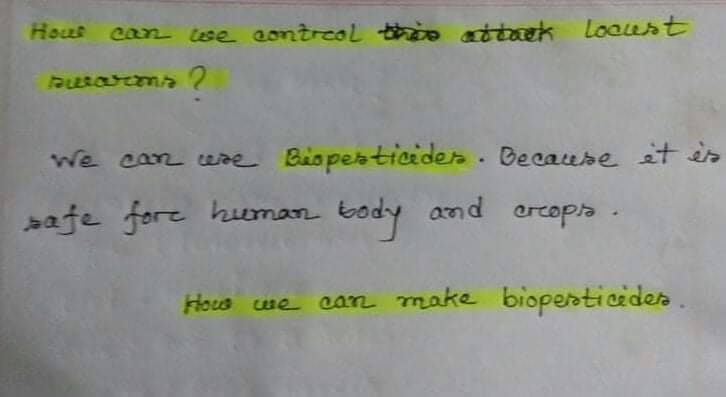 How can we control this attack locust
swarms?
We can use Biopesticides. Because it is
safe for human body and crops.
How we can make biopesticides.